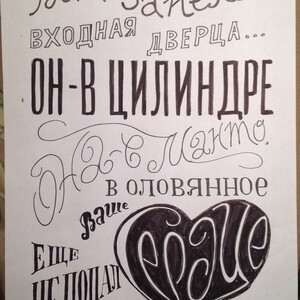 ВХОДНАЯ
ДВЕРЦА...
ОН-В ЦИЛИНДРЕ
Она-в манто.
В ОЛОВЯННОЕ
Ваше
сердце
ЕЩЕ
НЕ ПОПАЛ